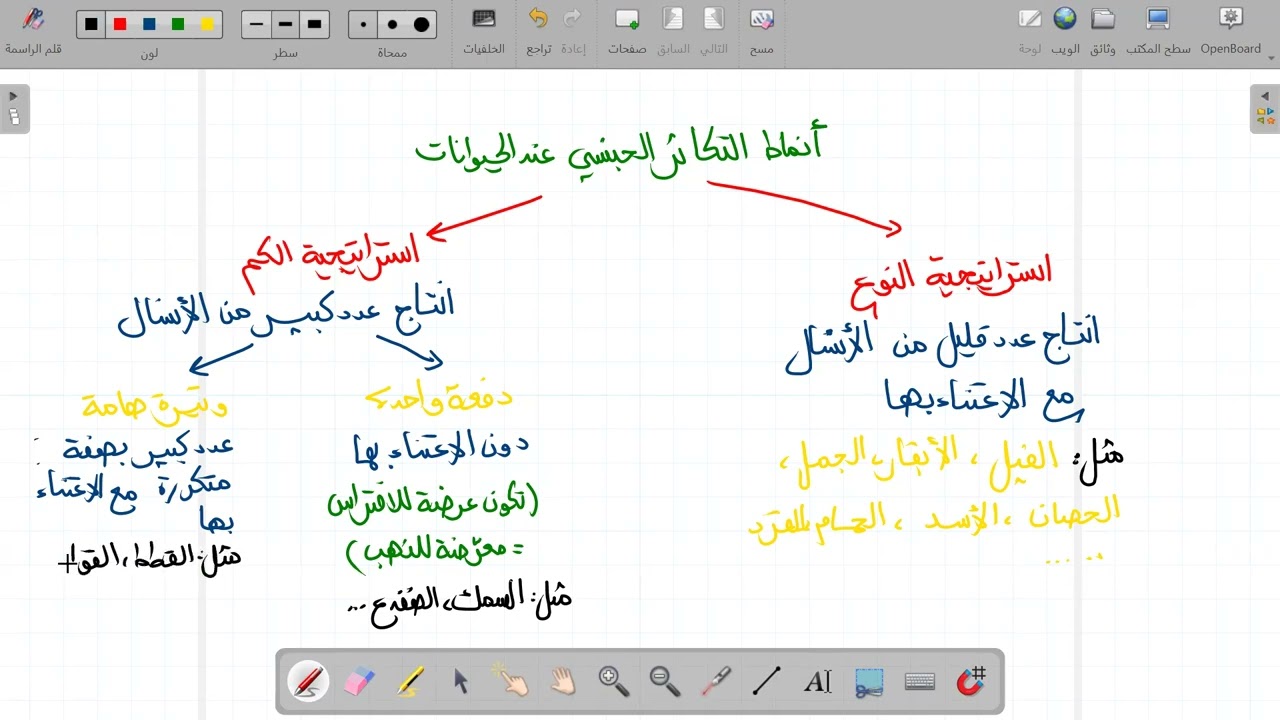 قلم الراسمة
لون
سطر
ممحاة
الخلفيات
تراجع
إعادة
صفحات
السابق
التالي
مسح
لوحة
الويب
وثائق
سطح المكتب
OpenBoard
أنماط التكاثر الجنسي عند الحيوانات
استراتيجية النوع
انتاج عدد قليل من الأنسال
مع الاعتناء بها
مثل: الفيل، الأبقار، الجمل،
الحصان، الأسد، الحمام، القرد
.....
استراتيجية الكم
انتاج عدد كبير من الأنسال
دفعة واحدة
دون الاعتناء بها
(تكون عرضة للافتراس
= معرّضة للنهب)
مثل: السمك، الضفدع ...
وتيرة هامة
عدد كبير بصفة
متكررة مع الاعتناء
بها
مثل: القطط،
AI